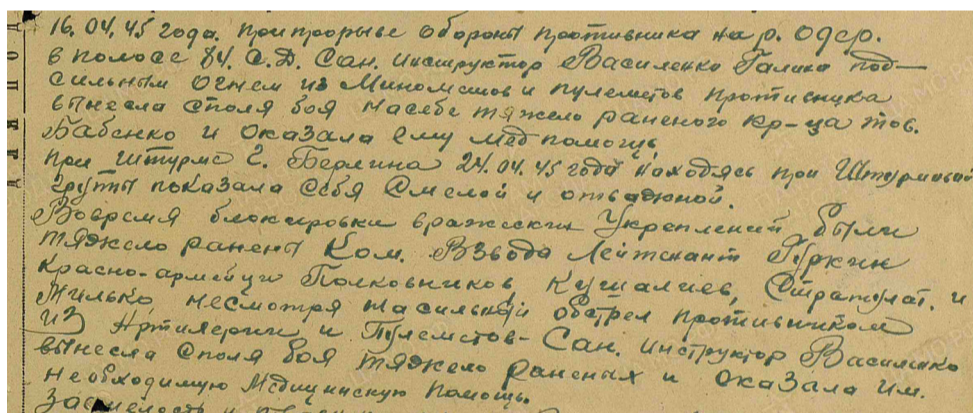 16.04.45 года. при прорыве обороны противника на р. Одер.
в полосе 84. С.Д. Сан. инструктор Василенко Галина под-
сильным огнем из Минометов и пулеметов противника
вынесла споля боя насебе тяжело раненого кр-ца тов.
Бабенко и оказала ему мед помощь
При штурме г. Берлина 24.04.45 года находясь при Штурмовой
группы показала себя смелой и отважной.
Вовремя блокировки вражеских Укреплений были
тяжело ранены Ком. Взвода Лейтенант Гуркин
Красно-армейци Полковников Кушалиев, Стратулат. и
Милько, несмотря насильный обстрел противником
из Артилерии и Пулеметов- Сан. инструктор Василенко
вынесла споля боя тяжело раненых и оказала им.
необходимую Медицинскую помощь.
За смелость и